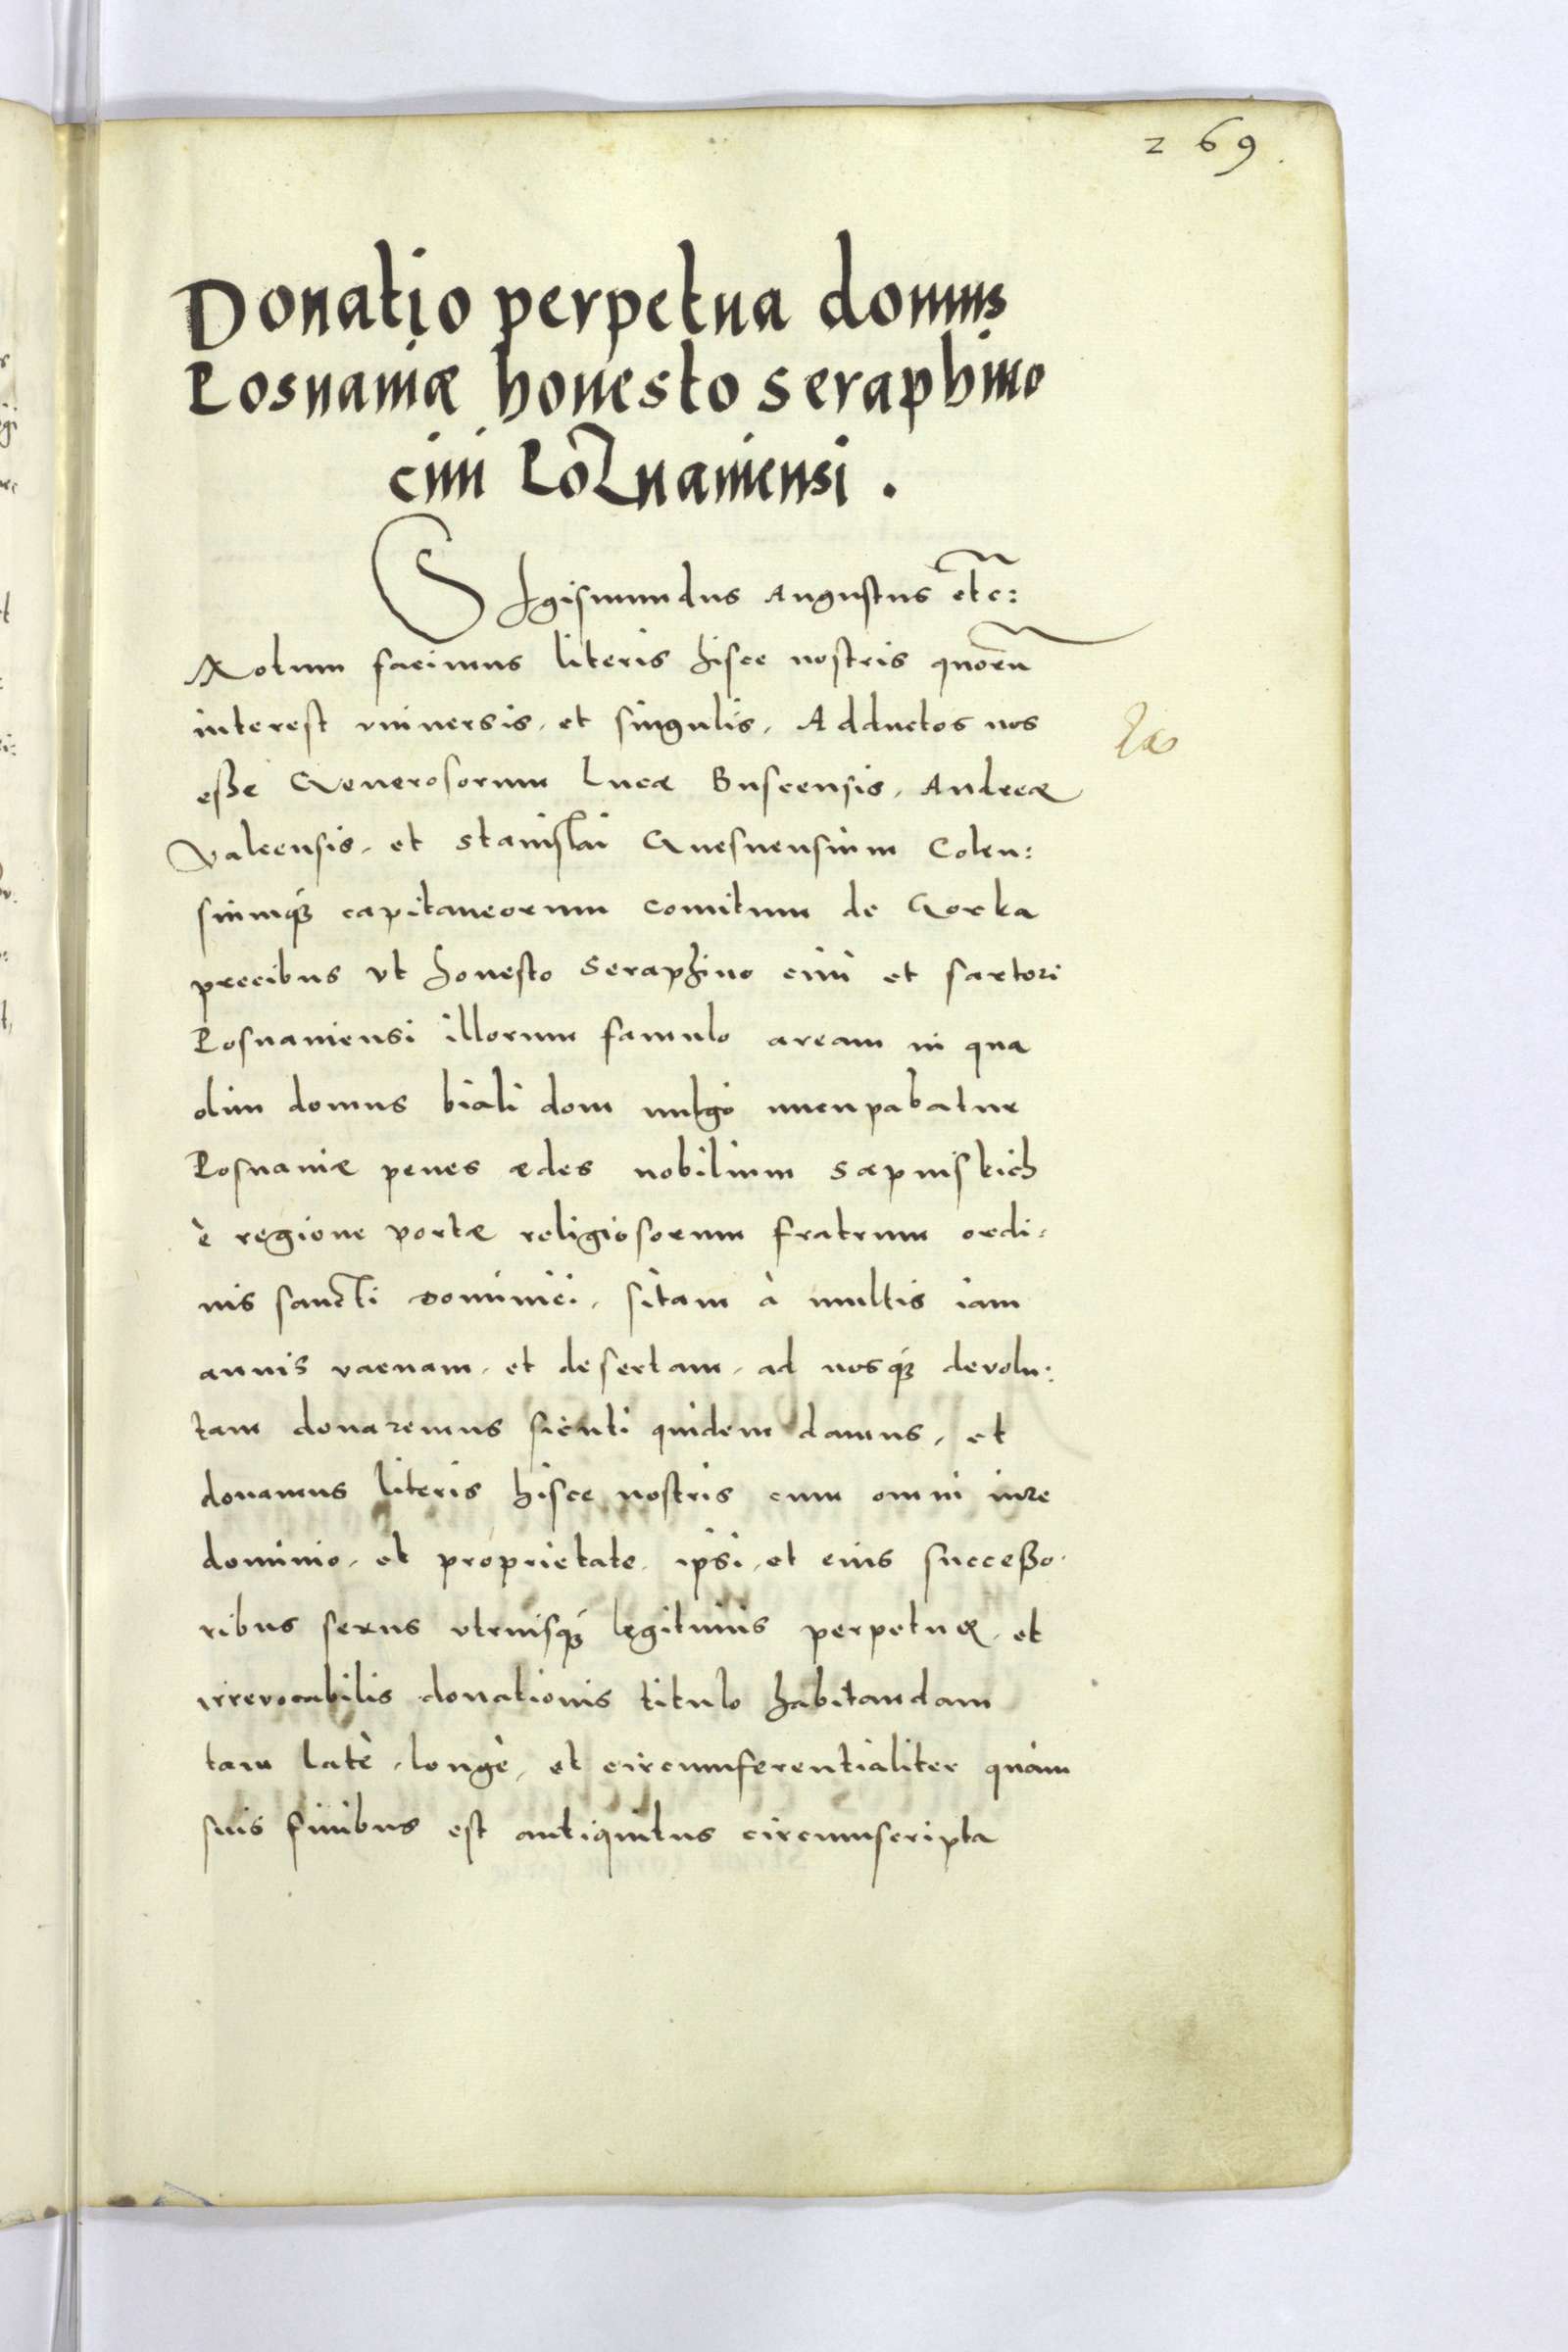 269.
Donatio perpetua domus
Posnaniæ honesto Seraphino
civi Poznaniensi.
SIgismundus Augustus etc:
Notum facimus literis hisce nostris quorũ
interest vniversis, et singulis, Adductos nos
esse Generosorum Lucæ Buscensis, Andreæ
Valcensis, et Stanislai Gnesnensium Colen:
siumq₃ capitaneorum comitum de Gorka
precibus vt honesto Seraphino civi et sartori
Posnaniensi illorum famulo aream in qua
olim domus biali dom vulgo nucupabatur
Posnaniæ penes ædes nobilium Sæpinskich
è regione portæ religiosorum fratrum ordi-
nis sancti Dominici, sitam à multis iam
annis vacuam, et desertam, ad nosq₃ devolu:
tam donaremus sicuti quidem damus, et
donamus literis hisce nostris cum omni iure
dominio, et proprietate, ipsi, et eius successo-
ribus sexus vtriusq₃ legitimis perpetuæ, et
irrevocabilis donationis titulo habitandam
tam latè, longè, et circumferentialiter quàm
suis finibus est antiquitus circumscripta